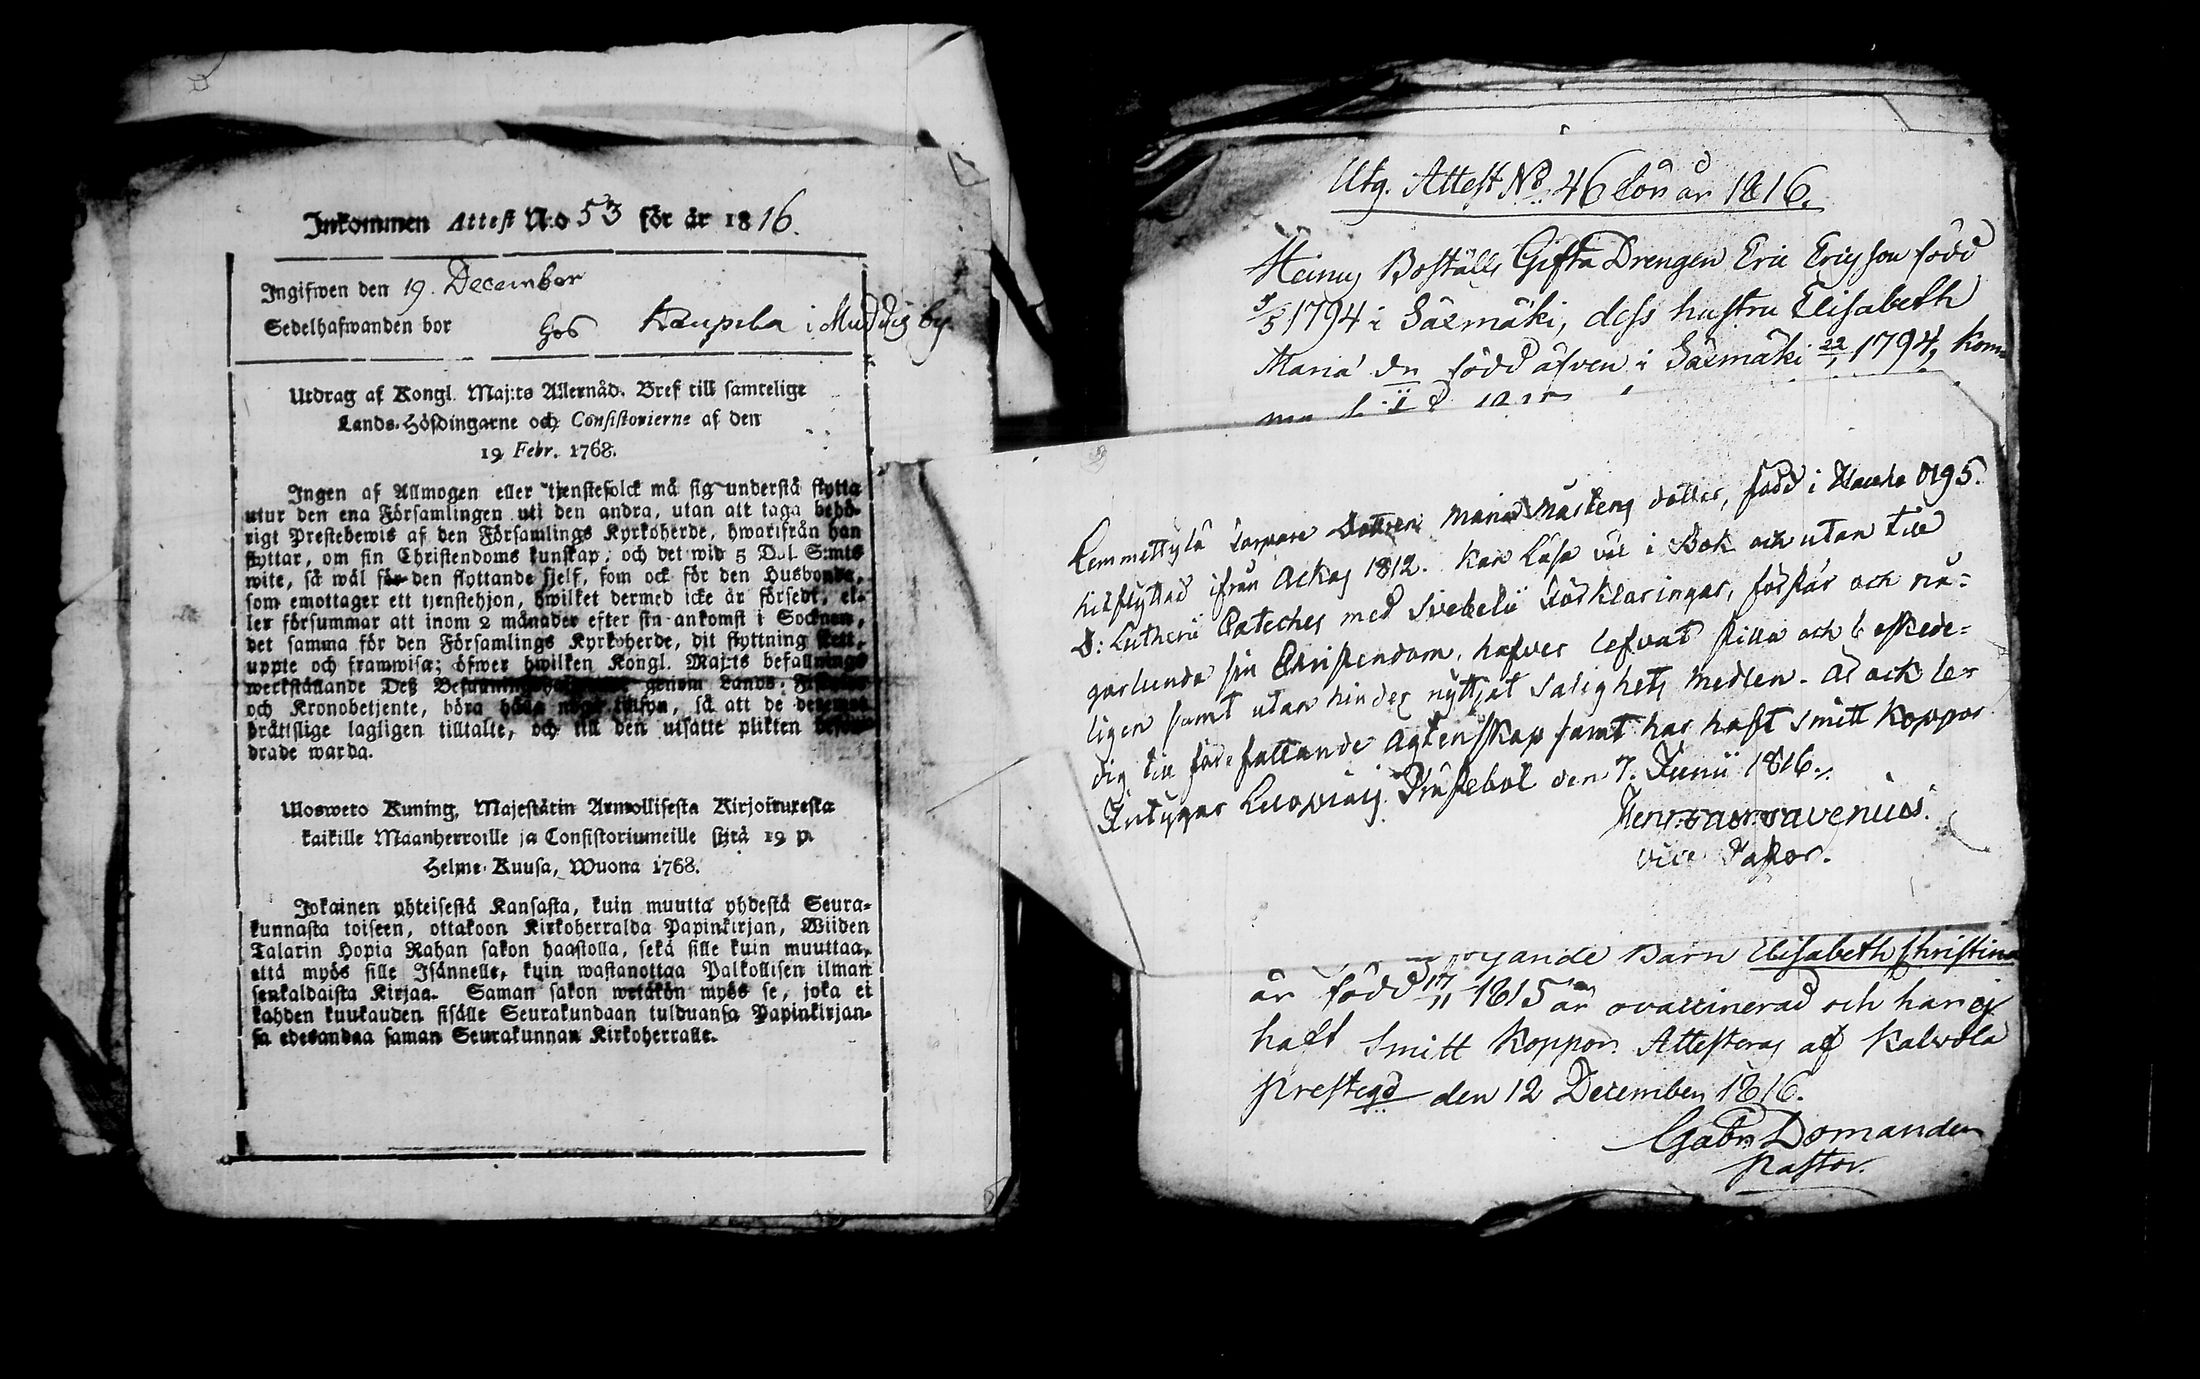 Inkommen Attest N:o 53 för år 1816.
Ingifwen den 19 December
Sedelhafwanden bor hos Kaupila i Muddis by.
Utdrag af Kongl. Maj:ts Allernåd. Bref till samtelige
Lands-Höfdingarne och Consistorierne af den
19 Febr. 1768.
Ingen af Allmogen eller tjenstefolck må sig understå flytta
utur den ena Församlingen uti den andra, utan att taga behö-
rigt Prestebewis af den Församlings Kyrkoherde, hwarifrån han
flyttar, om sin Christendoms kunskap; och det wid 5 Dal. S:mts
wite, så wäl för den flyttande sjelf, som ock för den Husbonde,
som emottager ett tjenstehjon, hwilket dermed icke är försedt, el-
ler försummar att inom 2 månader efter sin ankomst i Socknen,
det samma för den Församlings Kyrkoherde, dit flyttning skett,
uppte och framwisa; öfwer hwilken Kongl. Maj:ts befallnings
werkställande Deß genom Lands-
och Kronobetjente, böra hålla noga tillsyn, så att de
brättslige lagligen tilltalte, och till den utsatte plikten beför-
drade warda.
Ulosweto Kuning. Majestätin Armollisesta Kirjoituresta
kaikille Maanherroille ja Consistoriumeille siitä 19 p.
Helme-Kuusa, Wuona 1768.
Jokainen yhteisestä Kansasta, kuin muutta yhdestä Seura-
kunnasta toiseen, ottakoon Kirkoherralda Papinkirjan, Wiiden
Talarin Hopia Rahan sakon haastolla, sekä sille kuin muuttaa,
että myös sille Isännelle, kuin wastanottaa Palkollisen ilman
senkaldaista Kirjaa. Saman sakon wetäkön myös se, joka ei
kahden kuukauden sisälle Seurakundaan tulduansa Papinkirjan-
sa edesandaa saman Seurakunnan Kirkoherralle.
Utg. Attest No 46 för år 1816.
Heinus Boställs Gifta Drengen Eric Ericsson född
1794 i Säxmäki, dess hustru Elisabeth
Maria dr född äfven i Säxmäki 22/1 1794, kom
Lemmettylä Torpare Dottren Maria Mårtens dotter, född i 1795.
hitflyttad ifrån Ackas 1812. kan Läsa väl i Bok och utan till
D: Lutherii Cateches med Svebelii Förklaringar, förstår och nå-
gorlunda sin Christendom, hafver lefvat stilla och beskede-
ligen samt utan hinder nyttjat salighets medlen. är ock le-
dig till förefallande Agtenskap samt har haft Smitt koppor
Intygar den 7. Junii 1816.
vice Pastor.
Barn Elisabeth Christina
är född 17/11 1815 är ovaccinerad och har ej
haft Smitt koppor. Attesteras af Kalvola
Prestegd den 12 December 1816.
Gabr. Domander
Pastor.